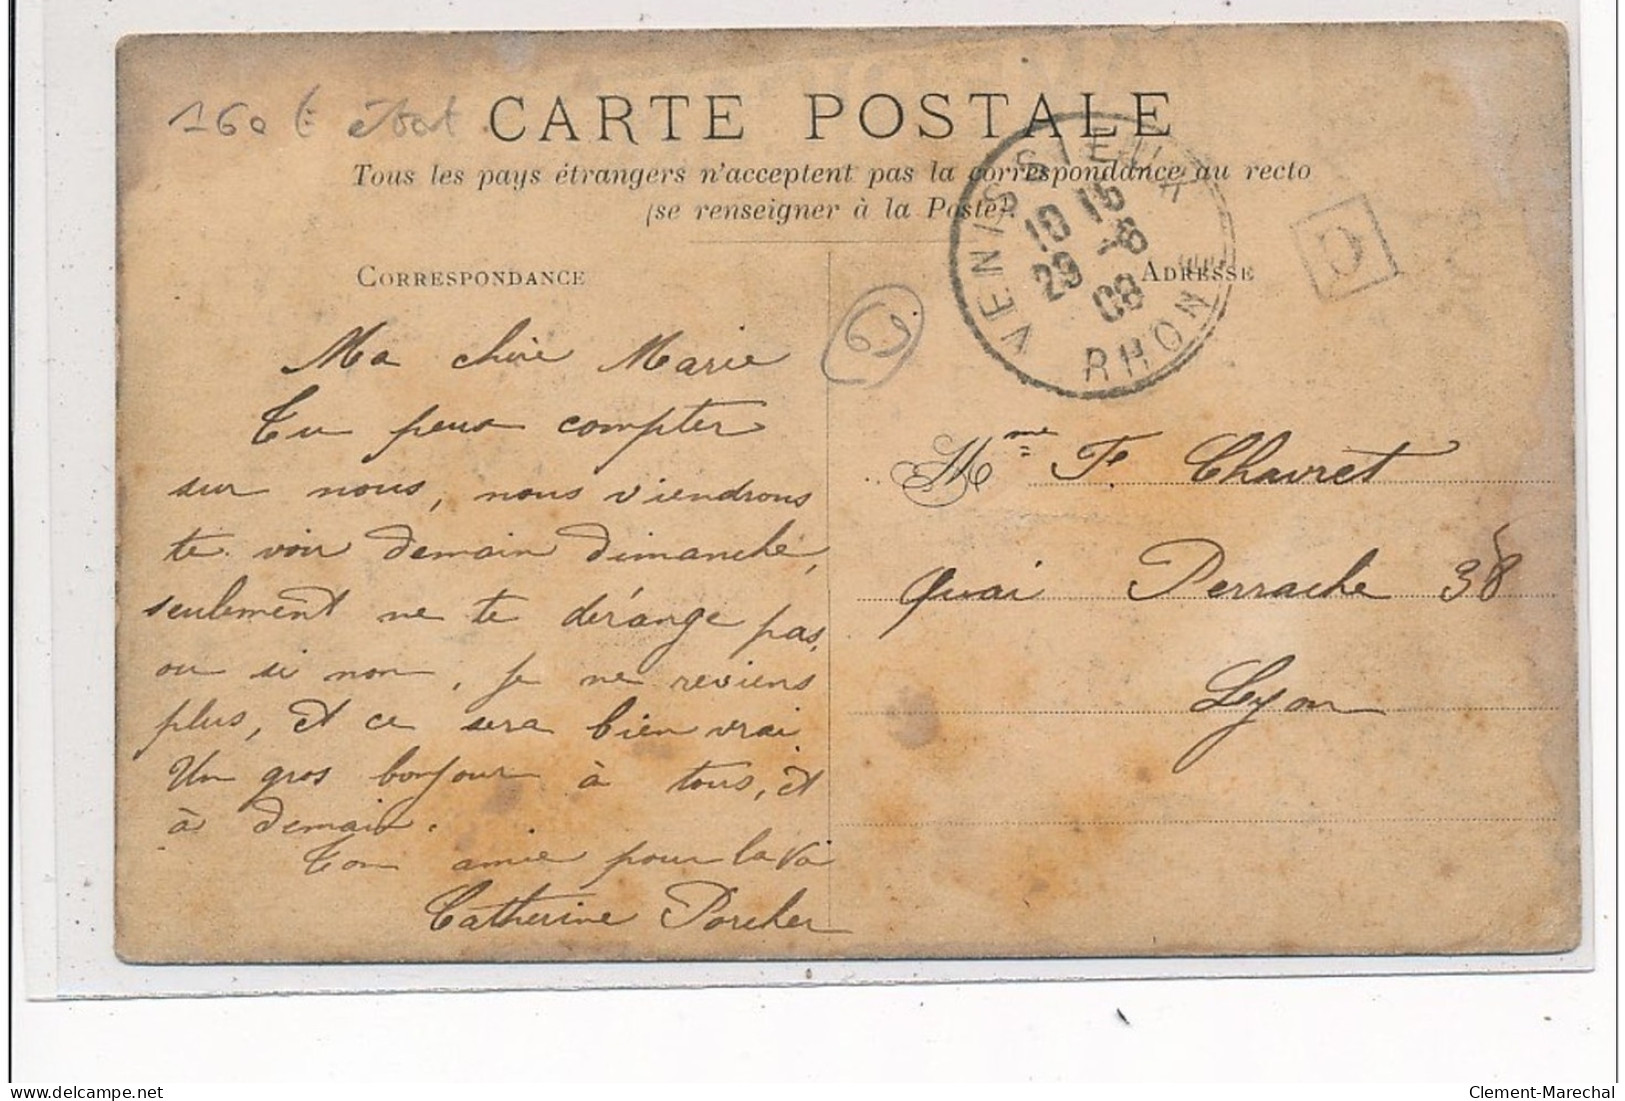 160 E état
CARTE POSTALE
Tous les pays étrangers n'acceptent pas la correspondance au recto
(se renseigner à la Poste).
VENISSIEUX
10 15
29 -8
08
RHONE
C
CORRESPONDANCE
69
Ma chère Marie
Tu peux compter
sur nous, nous viendrons
te voir demain dimanche,
seulement ne te dérange pas,
ou si non, je ne reviens
plus, et ce sera bien vrai
Un gros bonjour à tous, et
à demain.
Ton amie pour la vi
Catherine Porcher
ADRESSE
Mme F. Chavret
Quai Perrache 38
Lyon
Clement-Marechal
delcampe.net